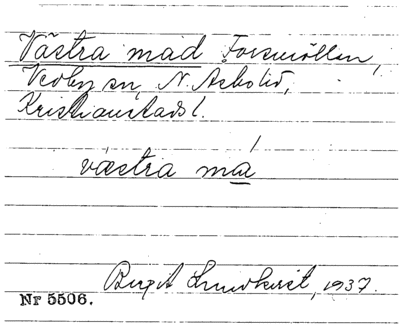 Västra mad Forsmöllan,
Vedby sn, N. Åsbo hd,
Kristianstads l.
västra má
Birgit Lundkvist, 1937.
Nr 5506.